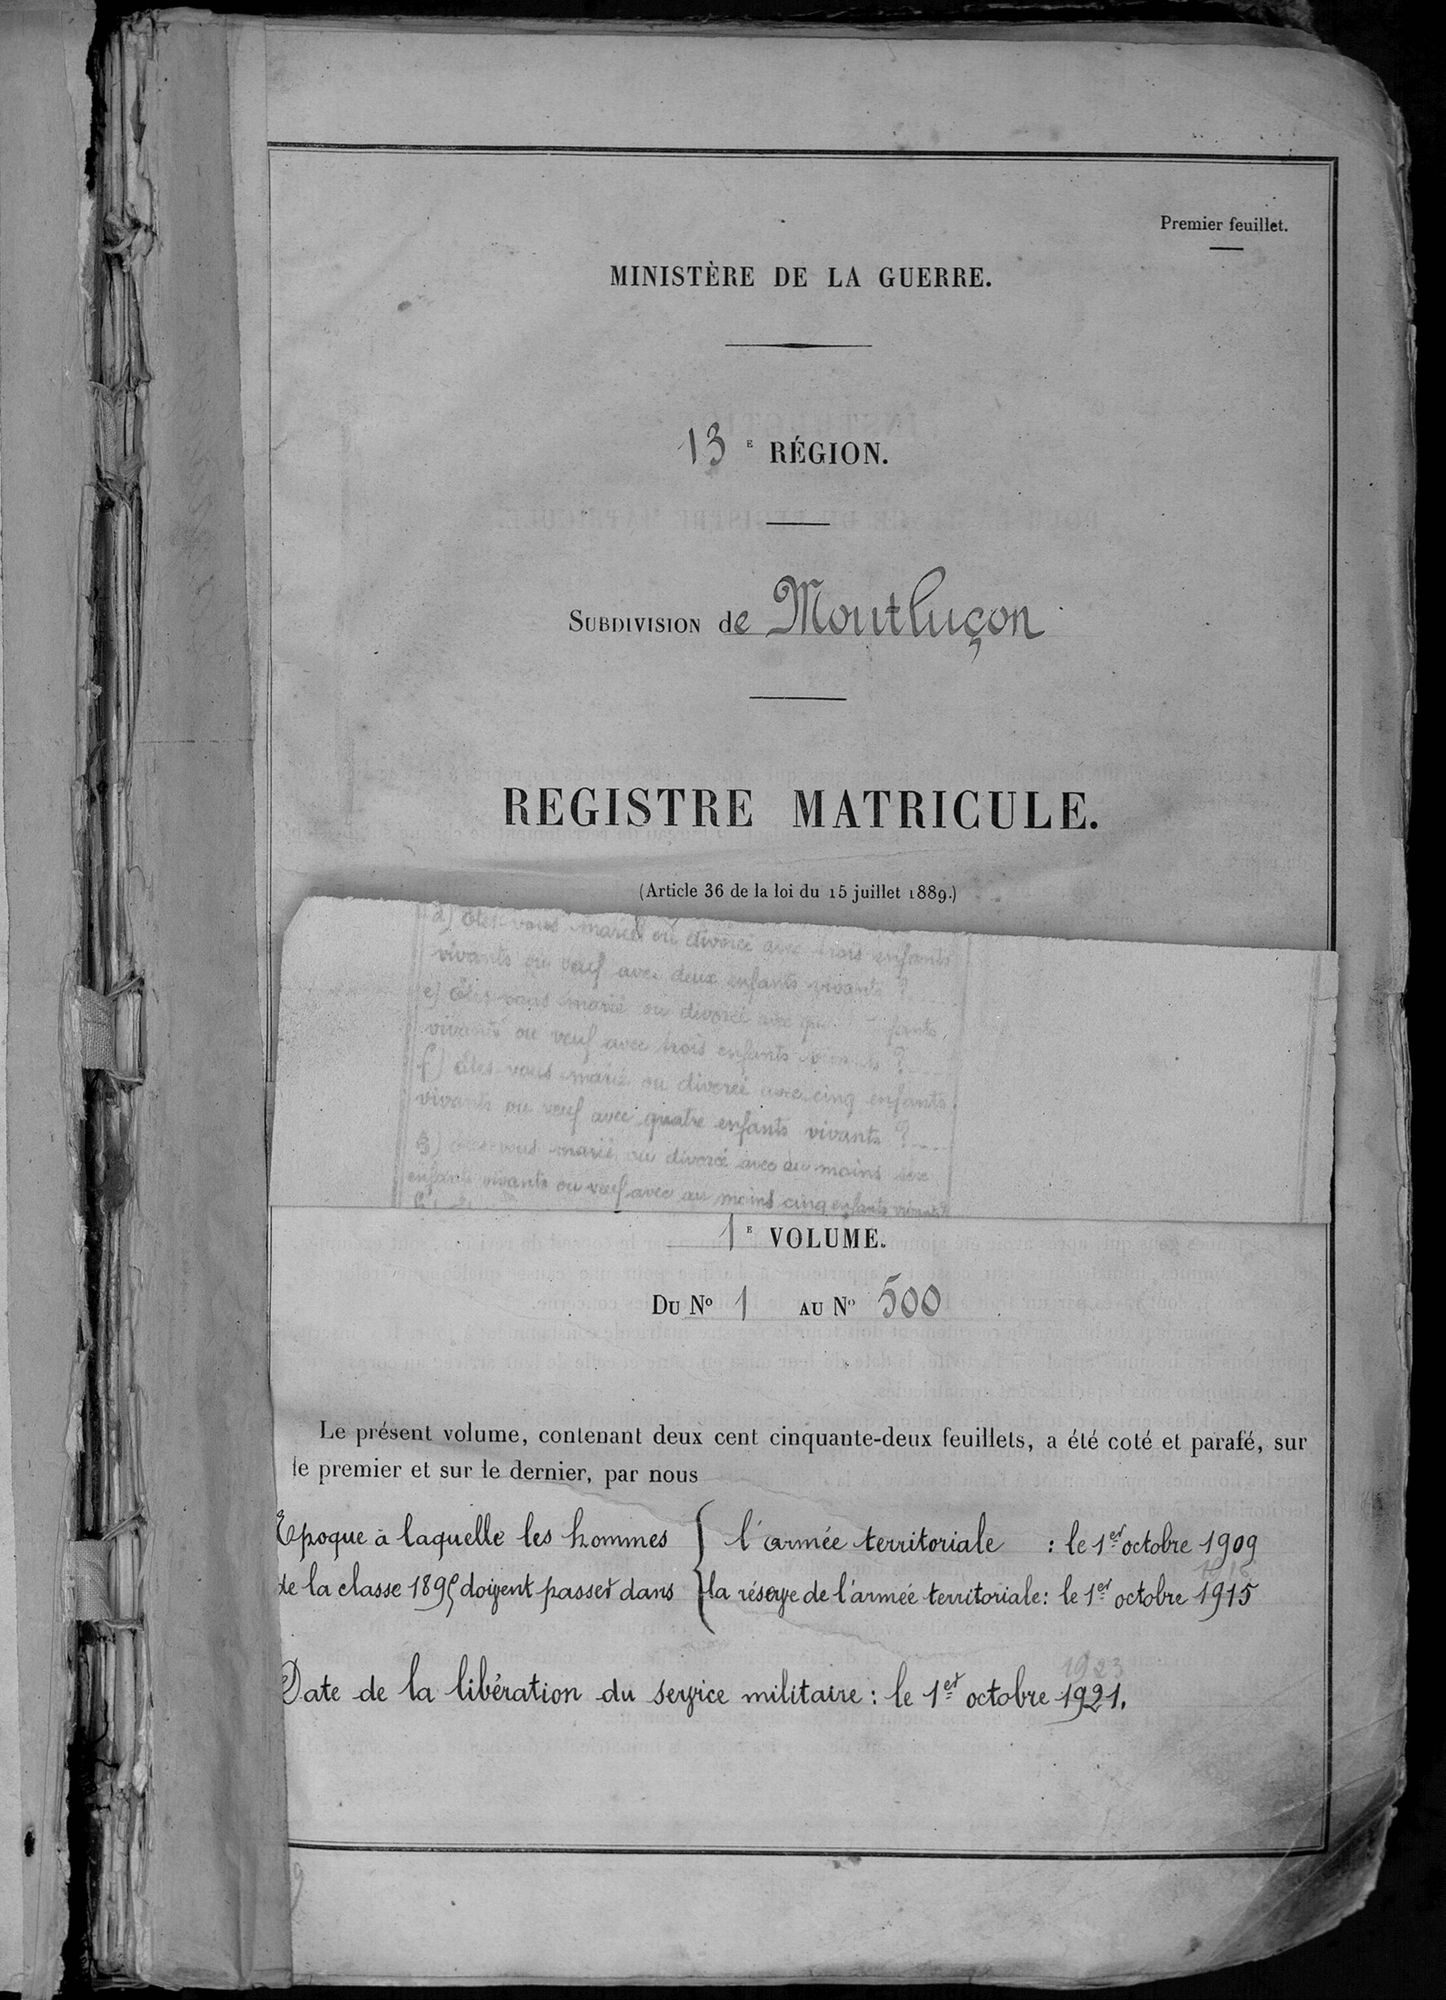 Premier feuillet.
MINISTÈRE DE LA GUERRE.
13E RÉGION.
SUBDIVISION de Montluçon
REGISTRE MATRICULE.
(Article 36 de la loi du 15 juillet 1889.)
d) Êtes-vous marié ou divorcé avec trois enfants
vivants ou veuf avec deux enfants vivants ?
e) Êtes-vous marié ou divorcé avec
vivants ou veuf avec trois enfants vivants ?
f) Êtes-vous marié ou divorcé avec cinq enfants
vivants ou veuf avec quatre enfants vivants ?
marié ou divorcé avec au moins six
enfants vivants ou veuf avec au moins cinq enfants vivants
1E VOLUME.
DU No 1 AU No 500
Le présent volume, contenant deux cent cinquante-deux feuillets, a été coté et parafé, sur
le premier et sur le dernier, par nous
Epoque à laquelle les hommes { l'armée territoriale : le 1er octobre 1909
1916
de la classe 1895 doivent passer dans { la réserve de l'armée territoriale : le 1er octobre 1915
1923
Date de la libération du service militaire : le 1er octobre 1921.